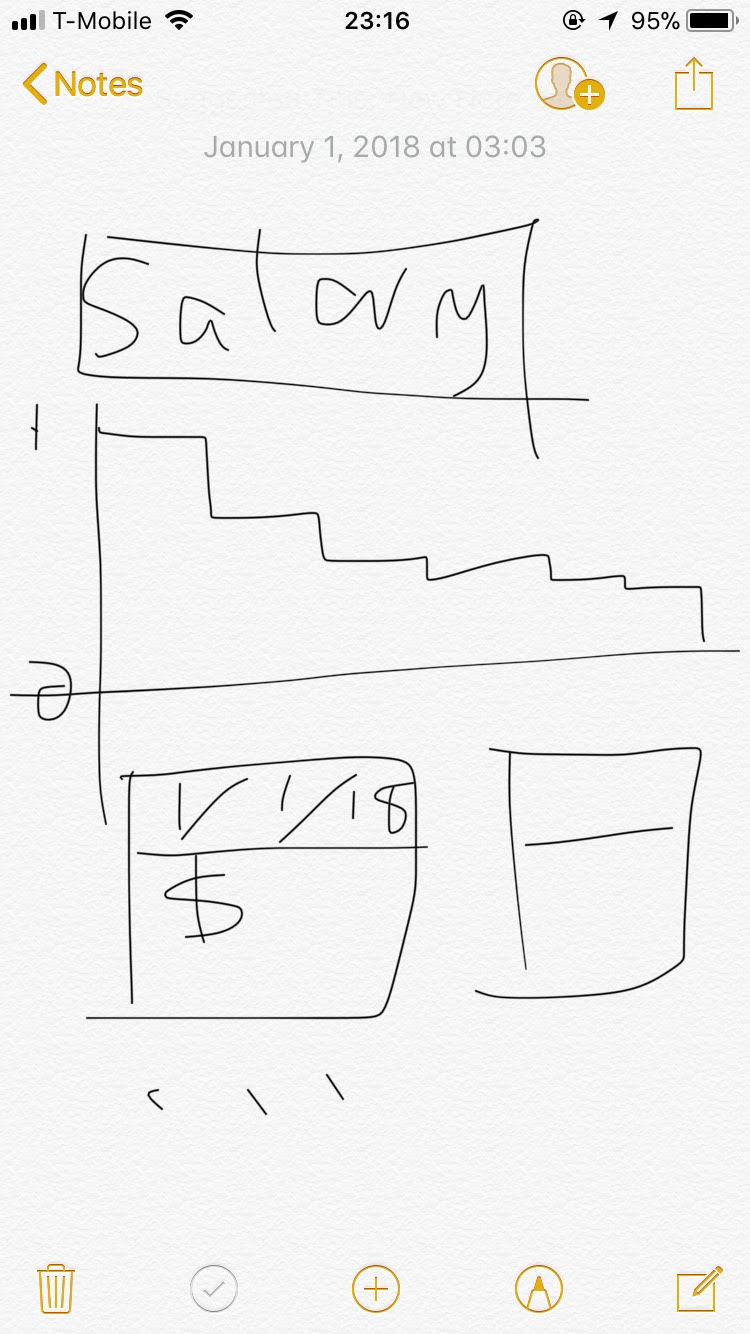 T-Mobile 23:16 95%
Notes
January 1, 2018 at 03:03
Salary
1
0
1/1/18
$